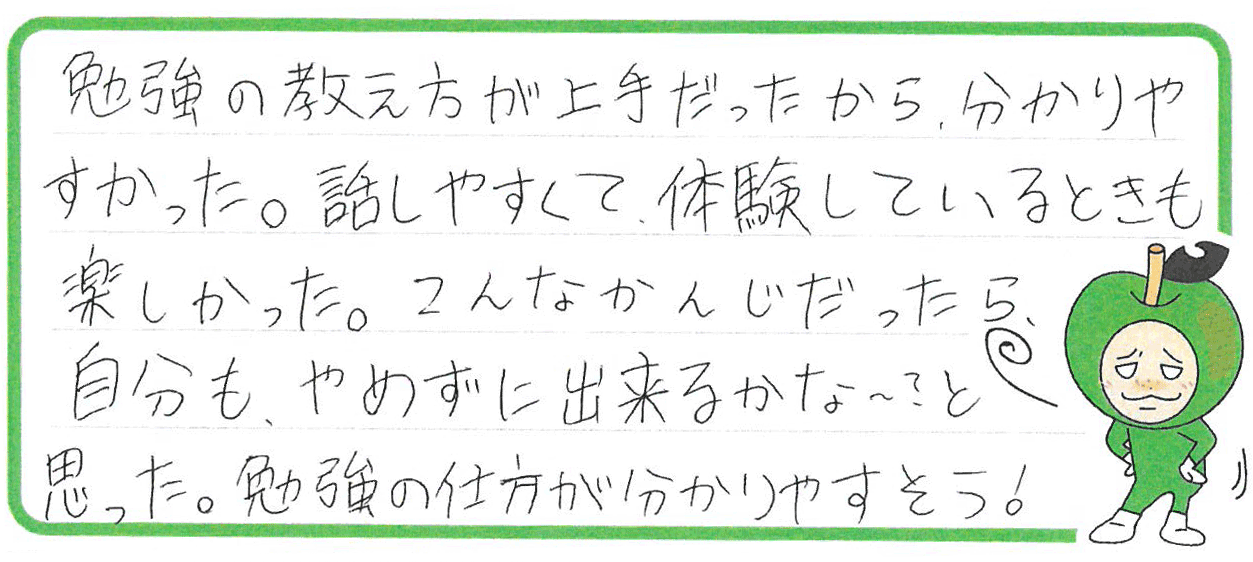 勉強の教え方が上手だったから、分かりや
すかった。話しやすくて、体験しているときも
楽しかった。こんなかんじだったら、
自分も、やめずに出来るかな〜?と
思った。勉強の仕方が分かりやすそう!